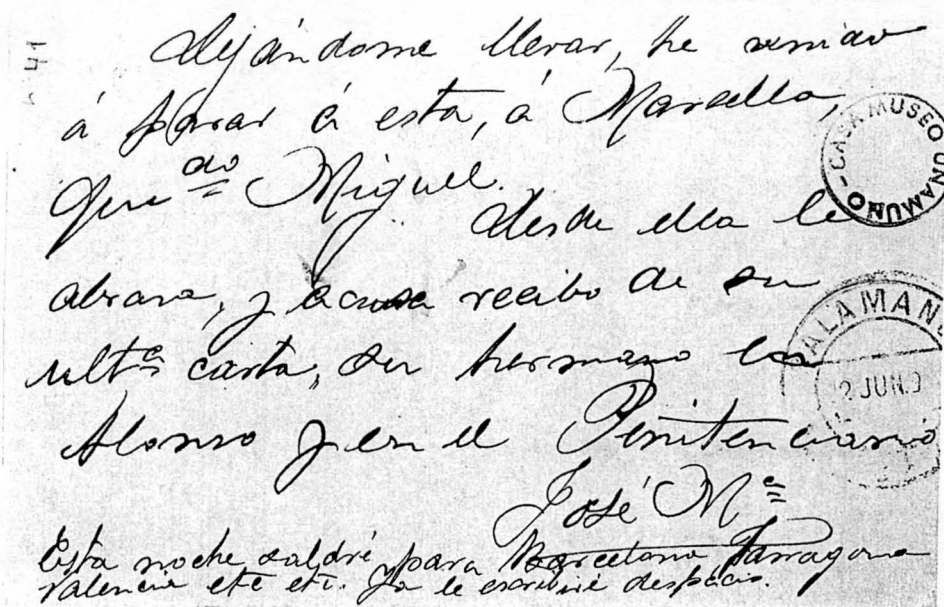 Dejándome llevar, he venido
á parar á esta, á Marsella,
Quedo Miguel.
Desde ella le
abraza, y acusa recibo de su
ultª carta, su hermano en
Alonso y en el Penitenciario
José Mª
Esta noche saldré para Barcelona Tarragona
Valencia etc etc. Ya le escribiré despacio.
CASA MUSEO UNAMUNO
SALAMAN
2 JUN.9
41